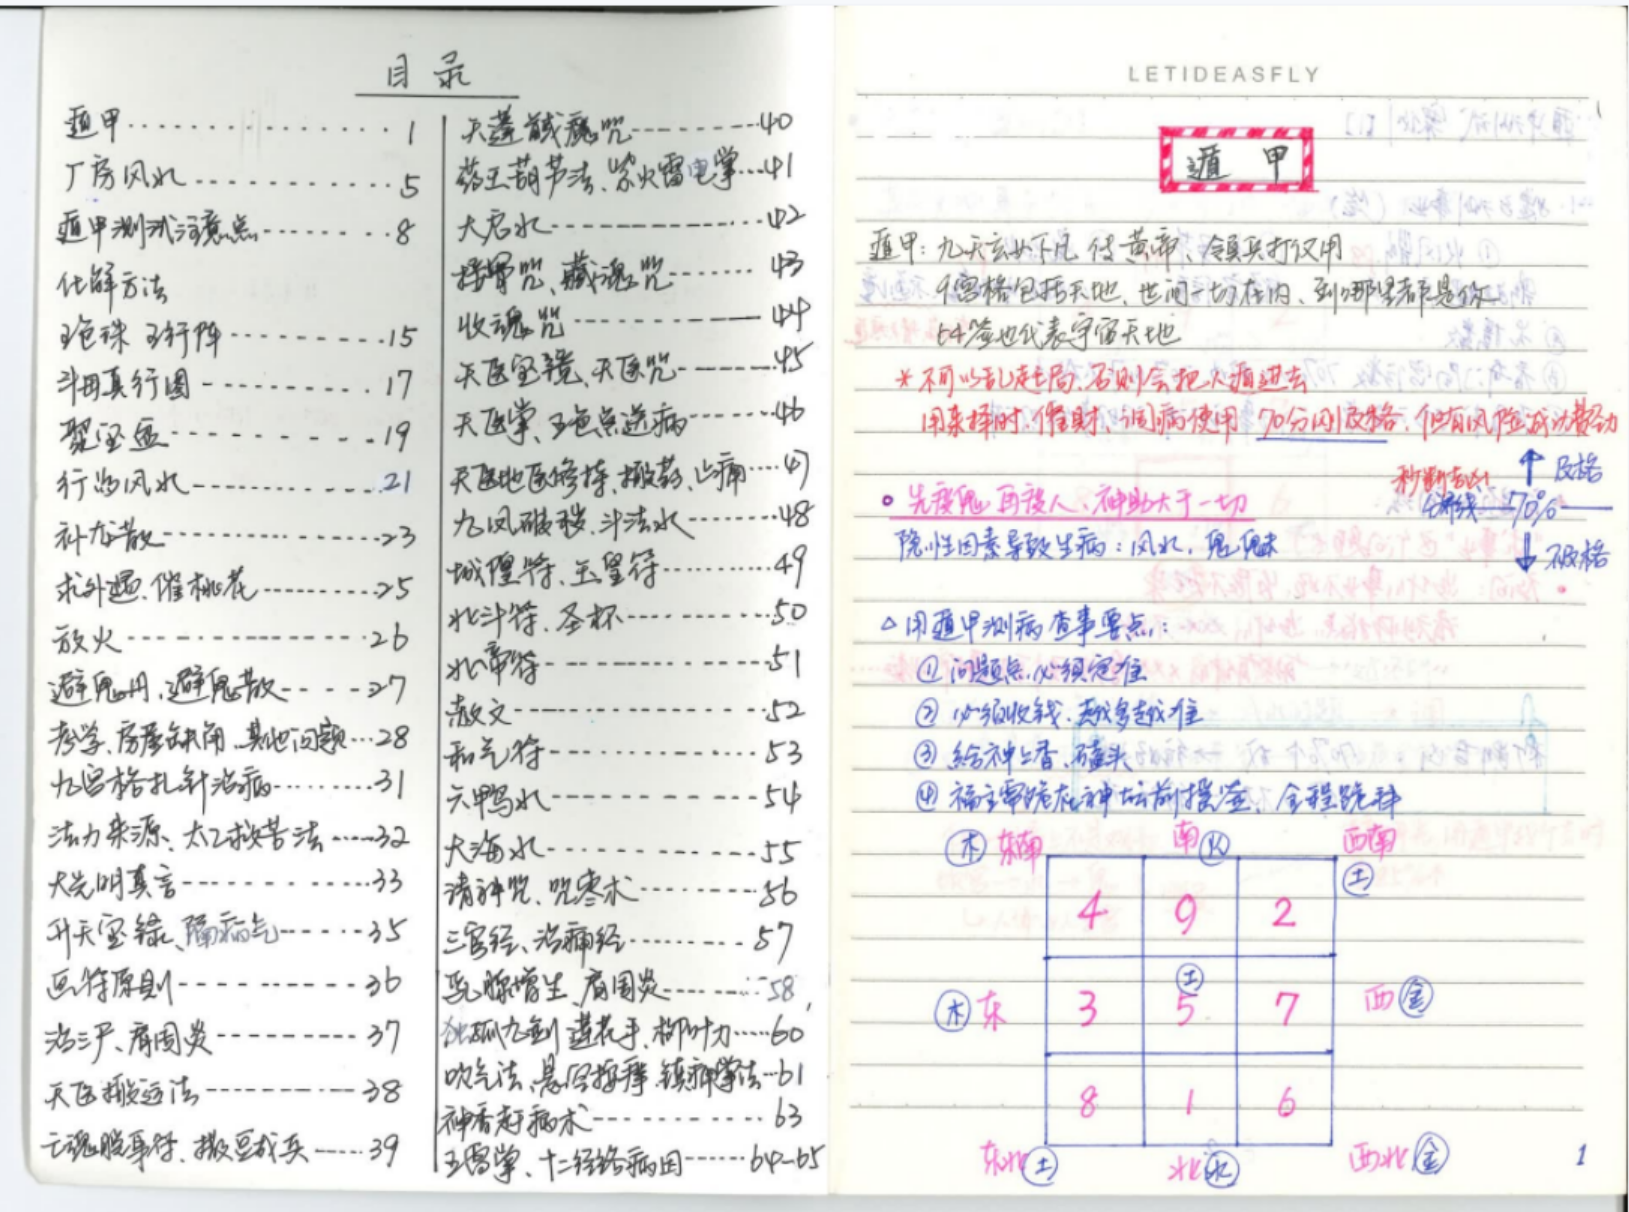 目录
遁甲 1
厂房风水 5
遁甲测试注意点 8
化解方法
五色珠 五行阵 15
斗母真行图 17
聚宝盆 19
行为风水 21
补龙散 23
求外遇、催桃花 25
放火 26
避鬼丹、避鬼散 27
考学、房屋缺角、其他问题 28
九宫格扎针治病 31
法力来源、太乙救苦法 32
大光明真言 33
升天宝箓、隔病气 35
画符原则 36
治三尸、肩周炎 37
天医搬运法 38
亡魂脱身符、撒豆成兵 39
天蓬馘魔咒 40
药王葫芦法、紫火雷电掌 41
大君水 42
接骨咒、藏魂咒 43
收魂咒 44
天医宝镜、天医咒 45
天医掌、五色点送病 46
天医地医修持、搬药、止痛 47
九凤破秽、斗法水 48
城隍符、玉皇符 49
北斗符、圣杯 50
北帝符 51
散文 52
和气符 53
六鸭水 54
大海水 55
请神咒、咒枣术 56
三官经、治痛经 57
乳腺增生、肩周炎 58
独孤九剑 莲花手、柳叶刀 60
吹气法、悬空按摩、镇神掌法 61
神香赶病术 63
五雷掌、十二经络病因 64-65
LETIDEASFLY
遁 甲
遁甲:九天玄女下凡 传 黄帝、领兵打仗用
9宫格包括天地、世间一切在内、到哪里都是你
64签也代表宇宙天地
* 不可以乱起局、否则会把人遁进去
用来择时、催财、调病使用 70分以及格、但有风险
秒断吉凶
及格
70%
不及格
。先度鬼 再度人、神助大于一切
隐性因素导致生病:风水、鬼魅
△ 用遁甲测病查事要点:
① 问题点必须定准
② 必须收钱、越多越准
③ 给神上香、磕头
④ 福主需跪在神坛前摇签、全程跪拜
木 东南 南 火 西南 土
4 9 2
木 东 3 土 5 7 西 金
8 1 6
东北 土 北 水 西北 金
1